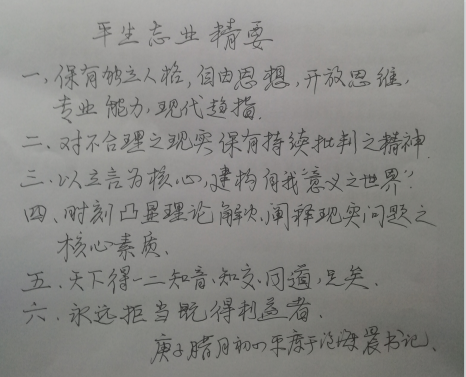 平生志业精要
一，保有独立人格，自由思想，开放思维，
专业能力，现代趋指．
二．对不合理之现实保有持续批判之精神．
三．以立言为核心，建构自我“意义之世界”．
四、时刻凸显理论解决、阐释现实问题之
核心素质．
五．天下得一二知音、知交、同道，足矣．
六．永远拒当既得利益者．
庚子腊月初四 平度于沧海 书记．